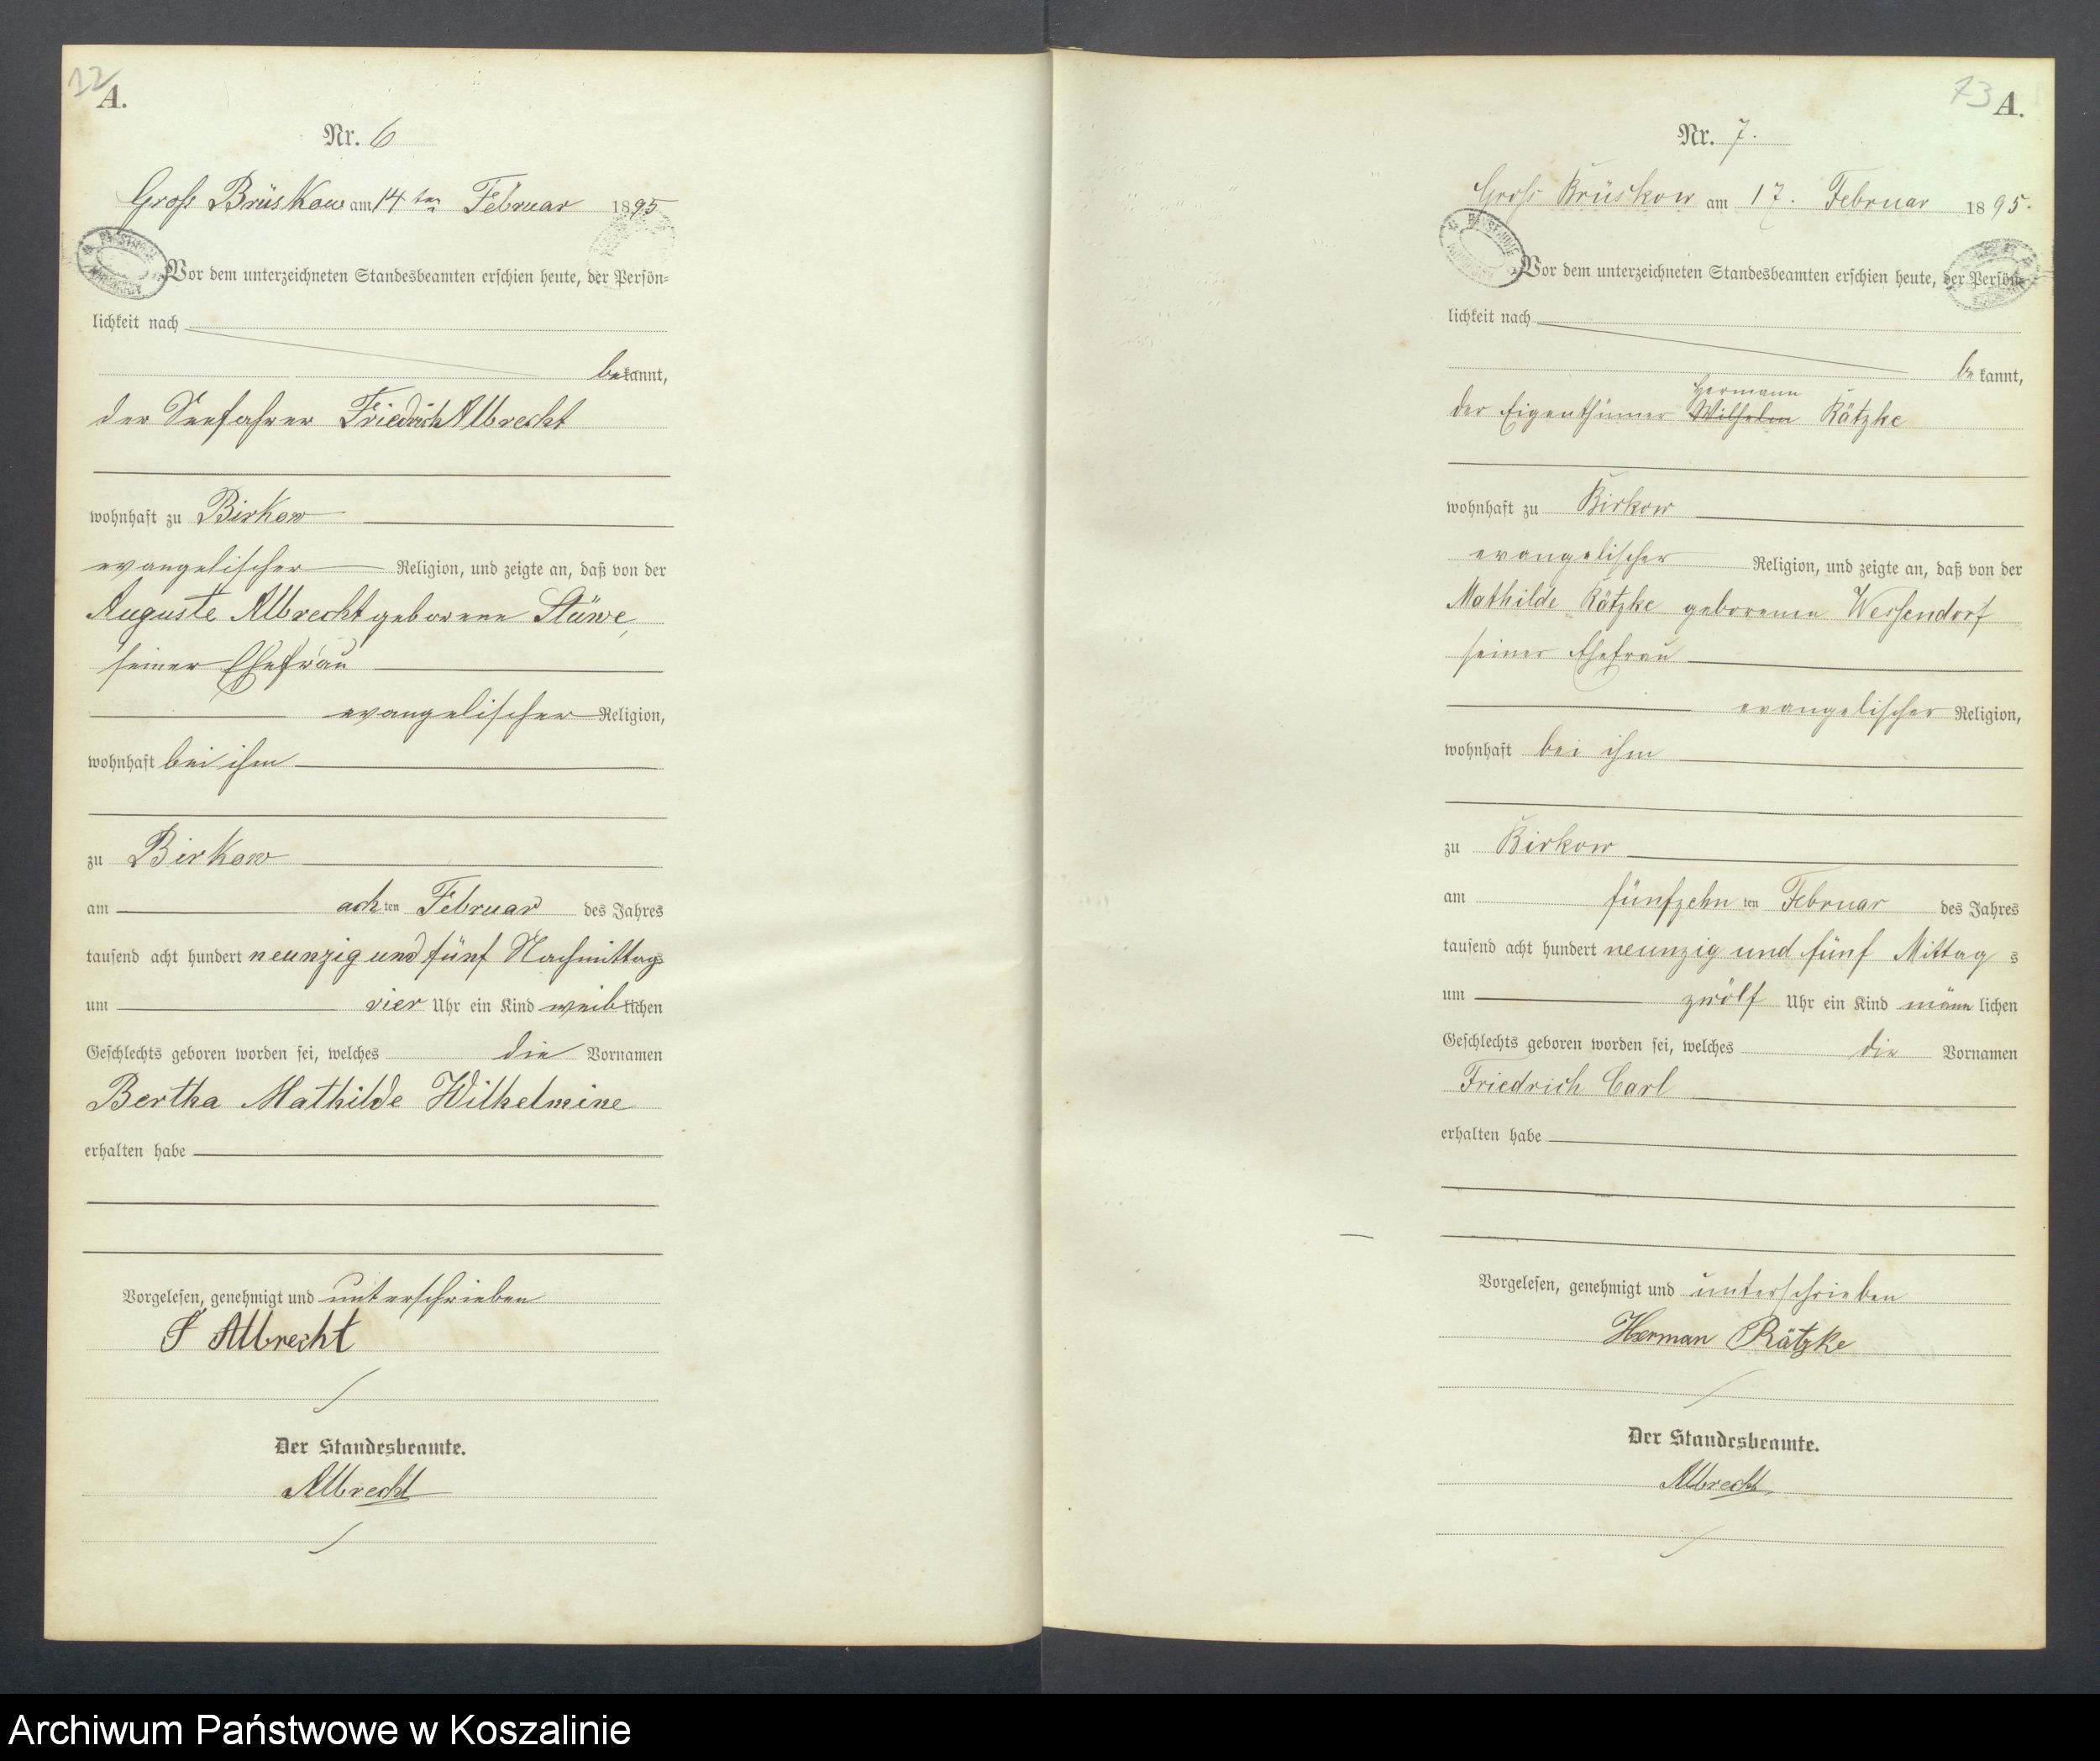 12
A.
Nr. 6
Groß Brüskow am 14ten Februar 1895
Vor dem unterzeichneten Standesbeamten erschien heute, der Persön-
lichkeit nach
bekannt,
der Seefahrer Friedrich Albrecht
wohnhaft zu Birkow
evangelischer Religion, und zeigte an, daß von der
Auguste Albrecht geborene Stüwe,
seiner Ehefrau
evangelischer Religion,
wohnhaft bei ihm
zu Birkow
am achten Februar des Jahres
tausend acht hundert neunzig und fünf Nachmittags
um vier Uhr ein Kind weiblichen
Geschlechts geboren worden sei, welches die Vornamen
Bertha Mathilde Wilhelmine
erhalten habe
Vorgelesen, genehmigt und unterschrieben
F Albrecht
Der Standesbeamte.
Albrecht
73 A.
Nr. 7.
Groß Brüskow am 17. Februar 1895.
Vor dem unterzeichneten Standesbeamten erschien heute, der Persön-
lichkeit nach
bekannt,
Hermann
der Eigenthümer Wilhelm Rätzke
wohnhaft zu Birkow
evangelischer Religion, und zeigte an, daß von der
Mathilde Rätzke geborenen Wessendorf
seiner Ehefrau
evangelischer Religion,
wohnhaft bei ihm
zu Birkow
am fünfzehnten Februar des Jahres
tausend acht hundert neunzig und fünf Mittags
um zwölf Uhr ein Kind männlichen
Geschlechts geboren worden sei, welches die Vornamen
Friedrich Carl
erhalten habe
Vorgelesen, genehmigt und unterschrieben
Herman Rätzke
Der Standesbeamte.
Albrecht
Archiwum Państwowe w Koszalinie